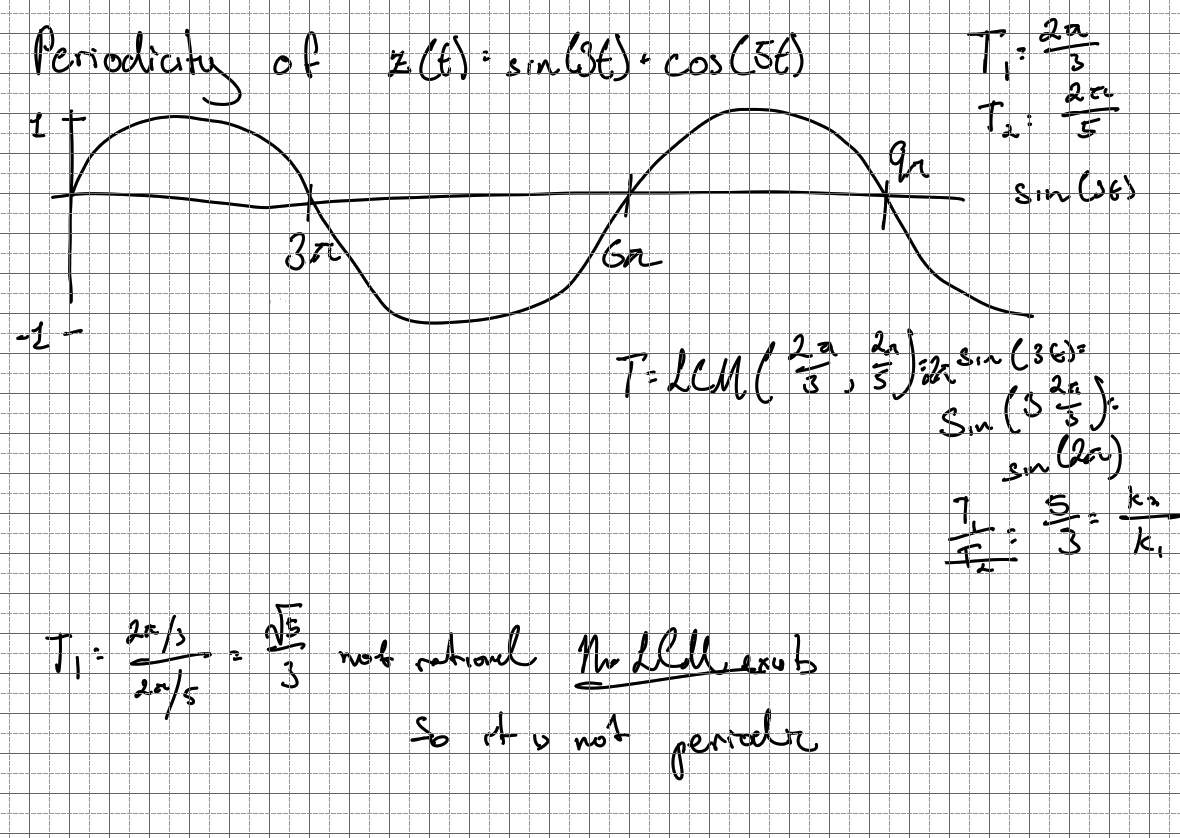 Periodicity of z(t) = sin(3t) + cos(5t)
T₁ = 2π/3
T₂ = 2π/5
1
9π
sin(3t)
3π
6π
-1
T = LCM(2π/3, 2π/5) = 2π
sin(3t) =
sin(3 2π/3) =
sin(2π)
T₁/T₂ = 5/3 = k₂/k₁
T₁ = (2π/3)/(2π/5) = √5/3 not rational No LCM exists
So it is not periodic